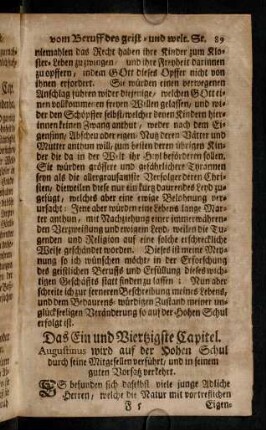 vom Beruff des geist- und welt. St. 89
niemahlen das Recht haben ihre Kinder zum Klo-
ster-Leben zu zwingen / und ihre Freyheit darinnen
zu opffern, indem GOtt dieses Opffer nicht von
ihnen erfordert. Sie würden einen verwegenen
Anschlag führen wider diejenige, welchen GOtt ei-
nen vollkommenen freyen Willen gelassen, und wi-
der den Schöpffer selbst, welcher denen Kindern hier-
innen keinen Zwang anthut, weder nach dem Ei-
gensinn, Abscheu oder eigen Nutz deren Vätter und
Mutter anthun will, zum besten deren übrigen Kin-
der die da in der Welt ihr Heyl beförderen sollen.
Sie würden grössere und gefährlichere Tyrannen
seyn als die allergrausamste Verfolger deren Chri-
sten, dieweilen diese nur ein kurtz daurendes Leyd zu-
gefügt, welches aber eine ewige Belohnung ver-
ursacht: Jene aber würden eine Lebens lange Mar-
ter anthun, mit Nachziehung einer immerwähren-
den Verzweifflung und ewigem Leyd, weilen die Tu-
genden und Religion auf eine solche erschreckliche
Weise geschändet worden. Dieses ist meine Mey-
nung so ich wünschen möchte in der Erforschung
des geistlichen Beruffs und Erfüllung dieses wich-
tigen Geschäffts statt finden zu lassen: Nun aber
schreite ich zur fernern Beschreibung meines Lebens,
und dem Bedaurens-würdigen Zustand meiner un-
glückseeligen Veränderung so auf der Hohen Schul
erfolgt ist.
Das Ein und Viertzigste Capitel.
Augustinus wird auf der Hohen Schul
durch seine Mitgesellen verführt, und in seinem
guten Vorsatz verkehrt.
ES befunden sich daselbst viele junge Adliche
Herren, welche die Natur mit vortreflichen
F 5 Eigen-